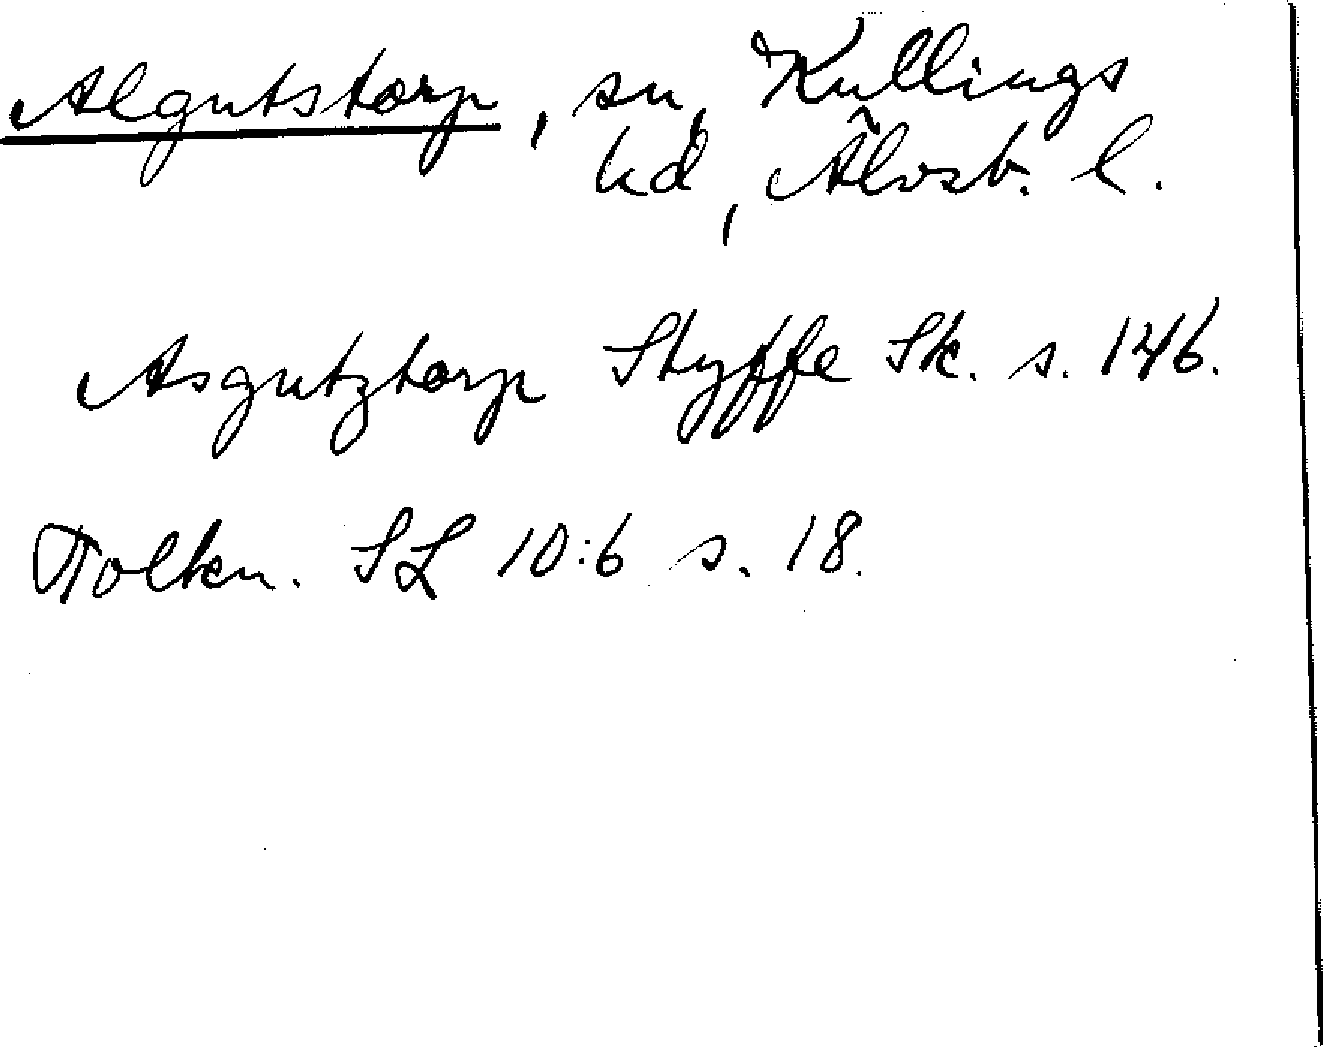 Algutstorp, sn, Kullings
hd, Älvsb. l.
Asgutztorp Styffe Sk. s. 146.
Tolkn. SL 10:6 s. 18.